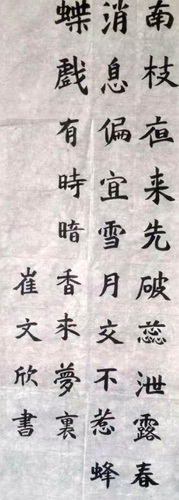 南枝夜来先破蕊泄露春
消息偏宜雪月交不惹蜂
蝶戲有時暗香来夢裏
崔文欣書